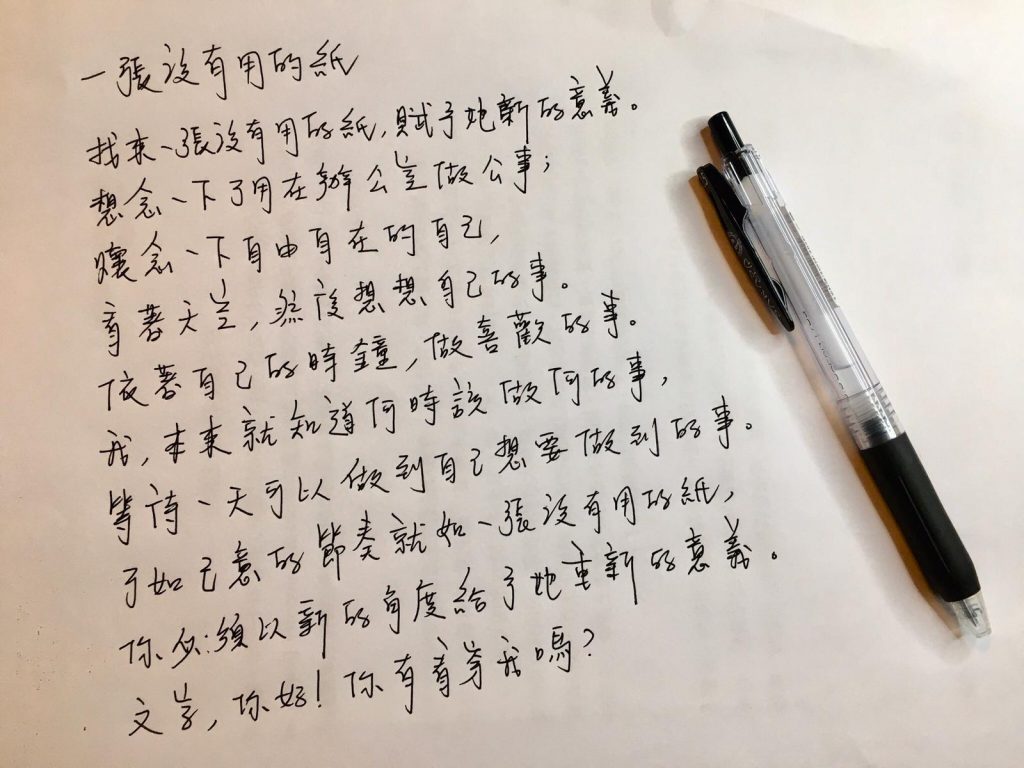 一張沒有用的紙
找來一張沒有用的紙,賦予她新的意義。
想念一下不用在辦公室做公事;
懷念一下自由自在的自己,
看著天空,然後想想自己的事。
依著自己的時鐘,做喜歡的事。
我,本來就知道何時該做何的事,
等待一天可以做到自己想要做到的事。
不如己意的節奏就如一張沒有用的紙,
你必須以新的角度給予她重新的意義。
文字,你好!你有看穿我嗎?